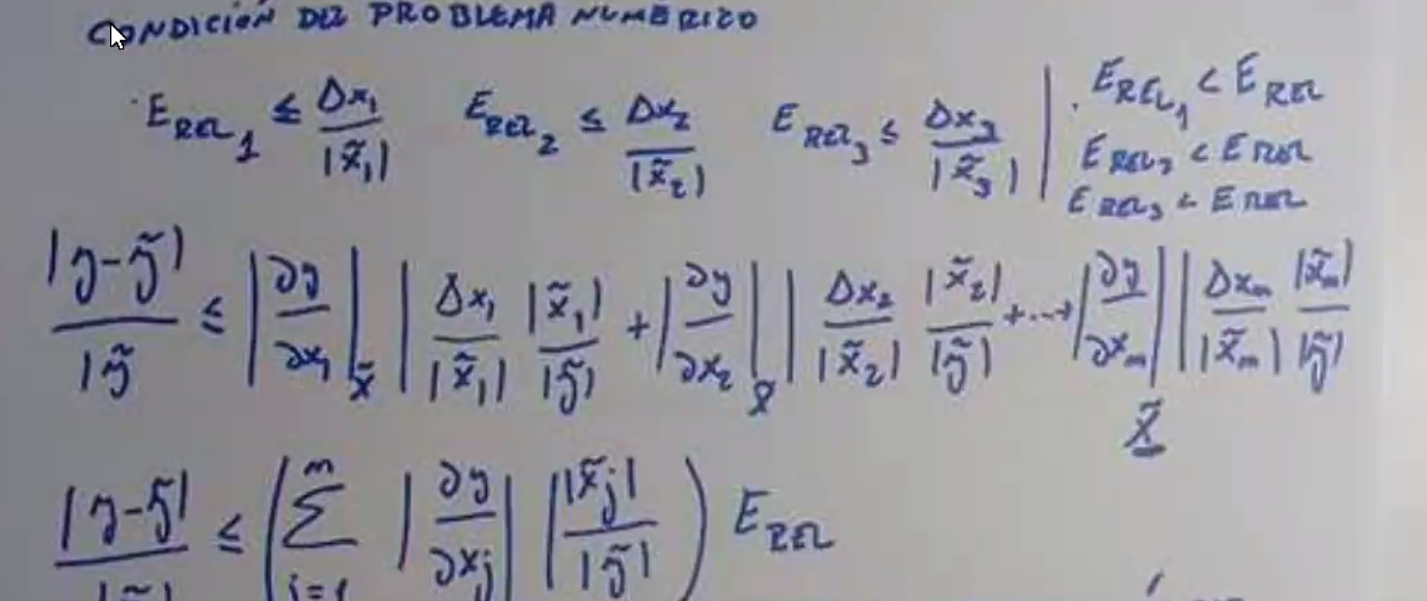 CONDICIÓN DEL PROBLEMA NUMÉRICO
E_REL₁ ≤ Δx₁/|x̃₁|   E_REL₂ ≤ Δx₂/|x̃₂|   E_REL₃ ≤ Δx₃/|x̃₃| | E_REL₁ < E_REL
E_REL₂ < E_REL
E_REL₃ < E_REL
|y-ỹ|/|ỹ| ≤ |∂y/∂x₁|_x̃ | Δx₁/|x̃₁| |x̃₁|/|ỹ| + |∂y/∂x₂|_x̃ | Δx₂/|x̃₂| |x̃₂|/|ỹ| + ... + |∂y/∂xₘ|_x̃ | Δxₘ/|x̃ₘ| |x̃ₘ|/|ỹ|
|y-ỹ|/|ỹ| ≤ (∑_{j=1}^{m} |∂y/∂xⱼ| |x̃ⱼ|/|ỹ|) E_REL